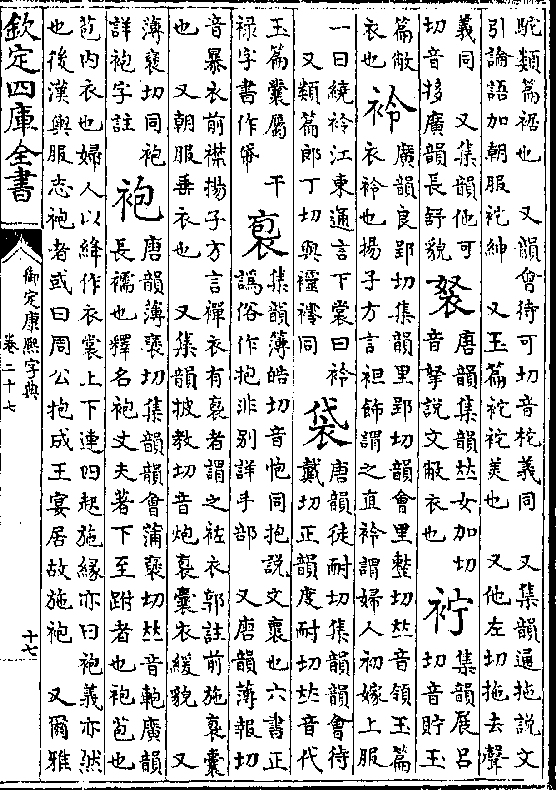 駝類篇裾也　又韻會待可切音柁義同　又集韻通拖說文
引論語加朝服袉紳　又玉篇袉袉美也　又他左切拖去聲
義同　又集韻他可
切音拸廣韻長舒貌
唐韻集韻𠀤女加切
音拏說文敝衣也
集韻展呂
切音貯玉
篇敝
衣也
袊
廣韻良郢切集韻里郢切韻會里整切𠀤音領玉篇
衣袊也揚子方言袒飾謂之直袊謂婦人初嫁上服
一曰繞袊江東通言下裳曰袊
又類篇郎丁切與同
袋
唐韻徒耐切集韻韻會待
戴切正韻度耐切𠀤音代
玉篇囊屬　干
祿字書作帒
袌
集韻簿皓切音抱同抱說文袌也六書正
譌俗作抱非別詳手部　又唐韻薄報切
音暴衣前襟揚子方言襌衣有袌者謂之袏衣郭註前施袌囊
也　又朝服垂衣也　又集韻披教切音炮袌囊衣緩貌　又
薄褒切同袍
詳袍字註
袍
唐韻薄褒切集韻韻會蒲褒切𠀤音匏廣韻
長襦也釋名袍丈夫著下至跗者也袍苞也
苞內衣也婦人以絳作衣裳上下連四起施緣亦曰袍義亦然
也後漢輿服志袍者或曰周公抱成王宴居故施袍　又爾雅
欽定四庫全書
御定康熙字典
卷二十七
十七